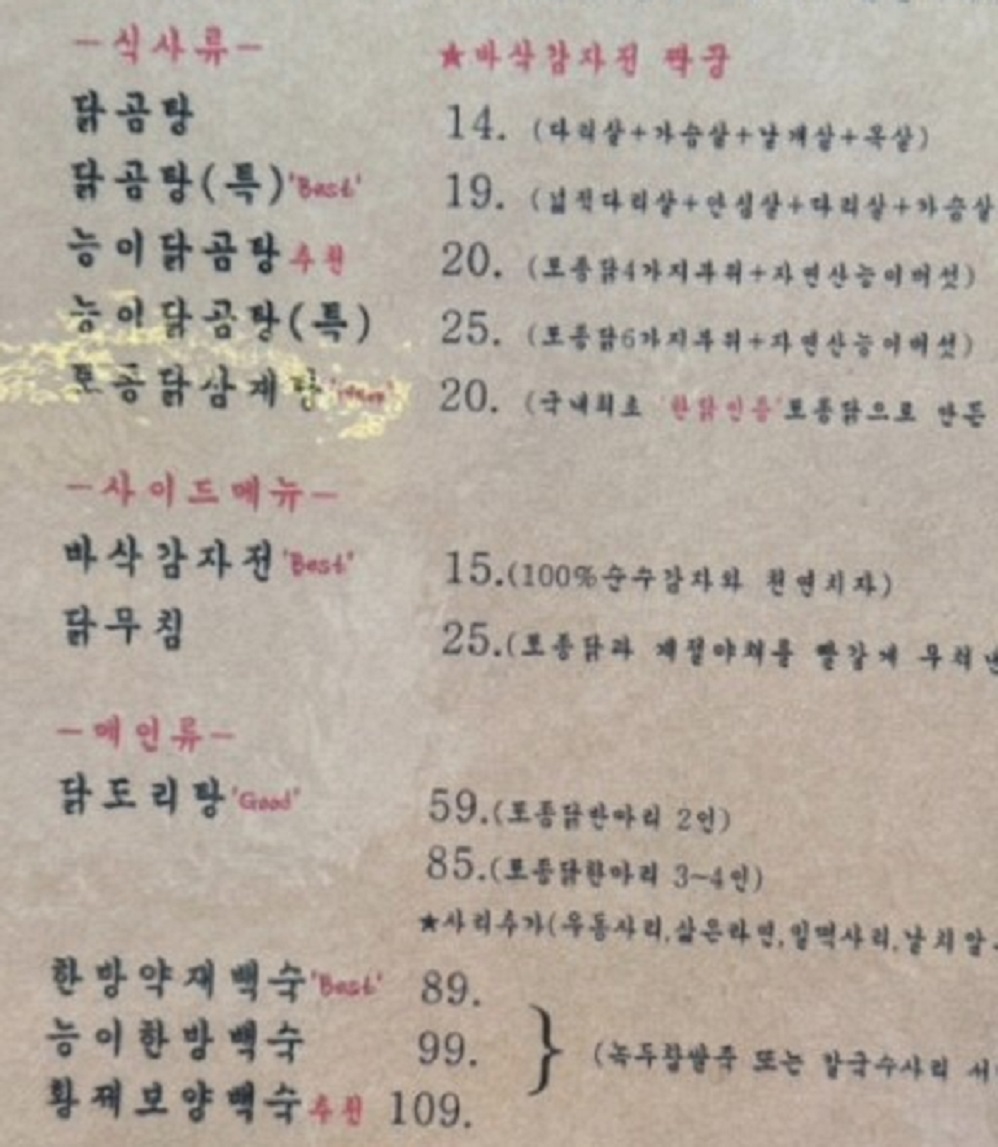 -식사류-
★바삭감자전 짝꿍
닭곰탕 14. (다리살+가슴살+날개살+목살)
닭곰탕(특)'Best' 19. (넓적다리살+안심살+다리살+가슴살
능이닭곰탕 추천 20. (토종닭4가지부위+자연산능이버섯)
능이닭곰탕(특) 25. (토종닭6가지부위+자연산능이버섯)
토종닭삼계탕 20. (국내최초 '한닭인증'토종닭으로 만든
-사이드메뉴-
바삭감자전'Best' 15.(100%순수감자와 천연치자)
닭무침 25.(토종닭과 제철야채를 빨갛게 무쳐낸
-메인류-
닭도리탕'Good' 59.(토종닭한마리 2인)
85.(토종닭한마리 3~4인)
★사리추가(우동사리,삶은라면,밀떡사리,날치알
한방약재백숙'Best' 89.
능이한방백숙 99. } (녹두찹쌀죽 또는 칼국수사리 서
황제보양백숙 추천 109.